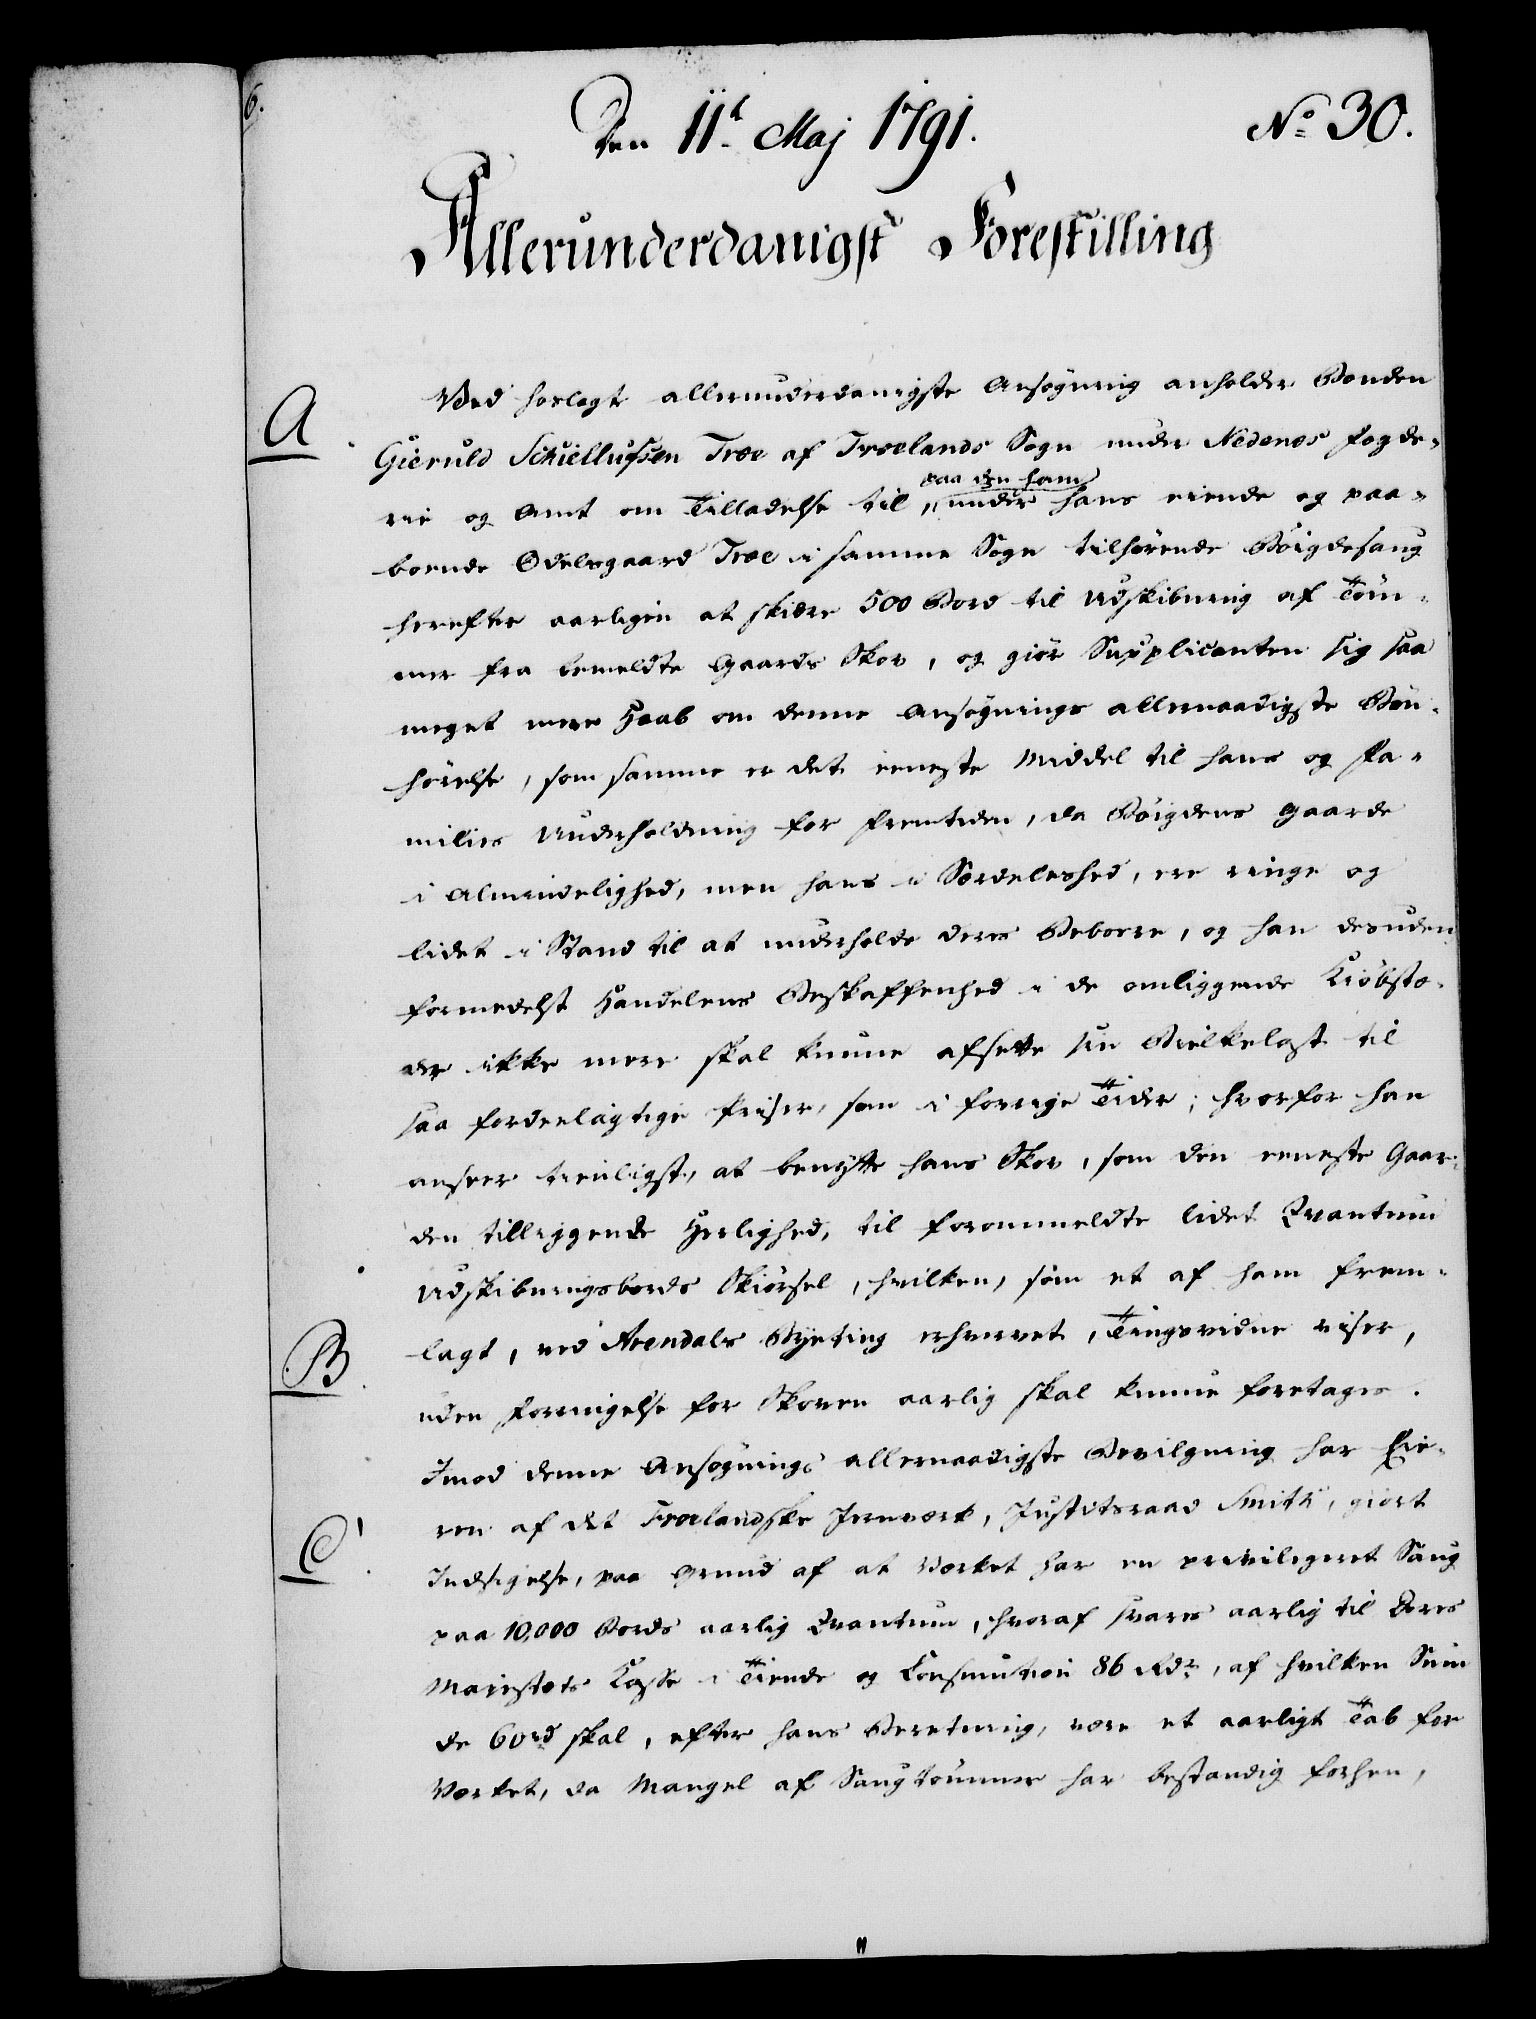 6.
Den 11t Maj 1791.
No 30.
Allerunderdanigst Forestilling
A
Ved herlagt allerunderdanigste Ansøgning anholder Bonden
Gieruld Schiellufsen Træe af Froelands Sogn under Nedenes Fogde-
rie og Amt om Tilladelse til
paa den ham
under hans eiende og paa-
boende Odelsgaard Træe i samme Sogn tilhørende Bøigdesaug
herefter aarligen at skiære 500 Bord til Udskibning af Tøm-
mer fra bemeldte Gaards Skov, og giør Supplicanten sig saa
meget mere Haab om denne Ansøgnings allernaadigste Bøn-
hørelse, som samme er det eeneste Middel til hans og Fa-
milies Underholdning for Fremtiden, da Bøigdens Gaarde
i Almindelighed, men hans i Særdeleshed, ere ringe og
lidet i Stand til at underholde deres Beboere, og han desuden
formedelst Handelens Beskaffenhed i de omliggende Kiøbstæ-
der ikke mere skal kunne afsette sin Bielkelast til
saa fordeelagtige Priser, som i forrige Tider; hvorfor han
anseer tienligst, at benytte hans Skov, som den eeneste Gaar-
den tilliggende Herlighed, til forommeldte lidet Qvantum
Udskibningsbords Skiørsel, hvilken, som et af ham frem-
B
lagt, ved Arendals Byeting erhvervet, Tingsvidne viser,
uden Forringelse for Skoven aarlig skal kunne foretages.
Imod denne Ansøgnings allernaadigste Bevilgning har Eie-
C
ren af det Froelandske Jernværk, Justitsraad Smith, giort
Indsigelse, paa Grund af at Værket har en privilegeret Saug
paa 10,000 Bords aarlig Qvantum, hvoraf svares aarlig til Deres
Majestæts Kasse i Tiende og Consumtion 86 Rdr, af hvilken Sum
de 60rd skal, efter hans Beretning, være et aarligt Tab for
Værket, da Mangel af Saugtømmer har bestandig forhen,